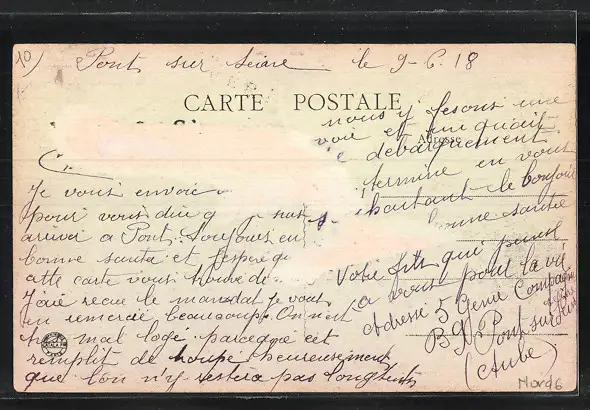 10)
Pont sur Seine le 9-6.18
CARTE POSTALE
Adresse
Je vous envoie
pour vous dire q suis
arriver a Pont. Toujours en
bonne santé et j'espère q
cette carte vous trouve de
J'aie recue le mandat Je vous
en remercie beaucoup. On n'est
mal logé. parceque cet
remplit de troupe heureusement
que l'on n'y restera pas longtemps
nous y fesons une
voie et un quait
de debarquement.
termine en vous
haitant le bonjour
bonne santée
Votre fils qui pense
a vous pour la vie
Adresse 5 Genie Compagnie
B.N.P
Pont sur Seine
(Aube)